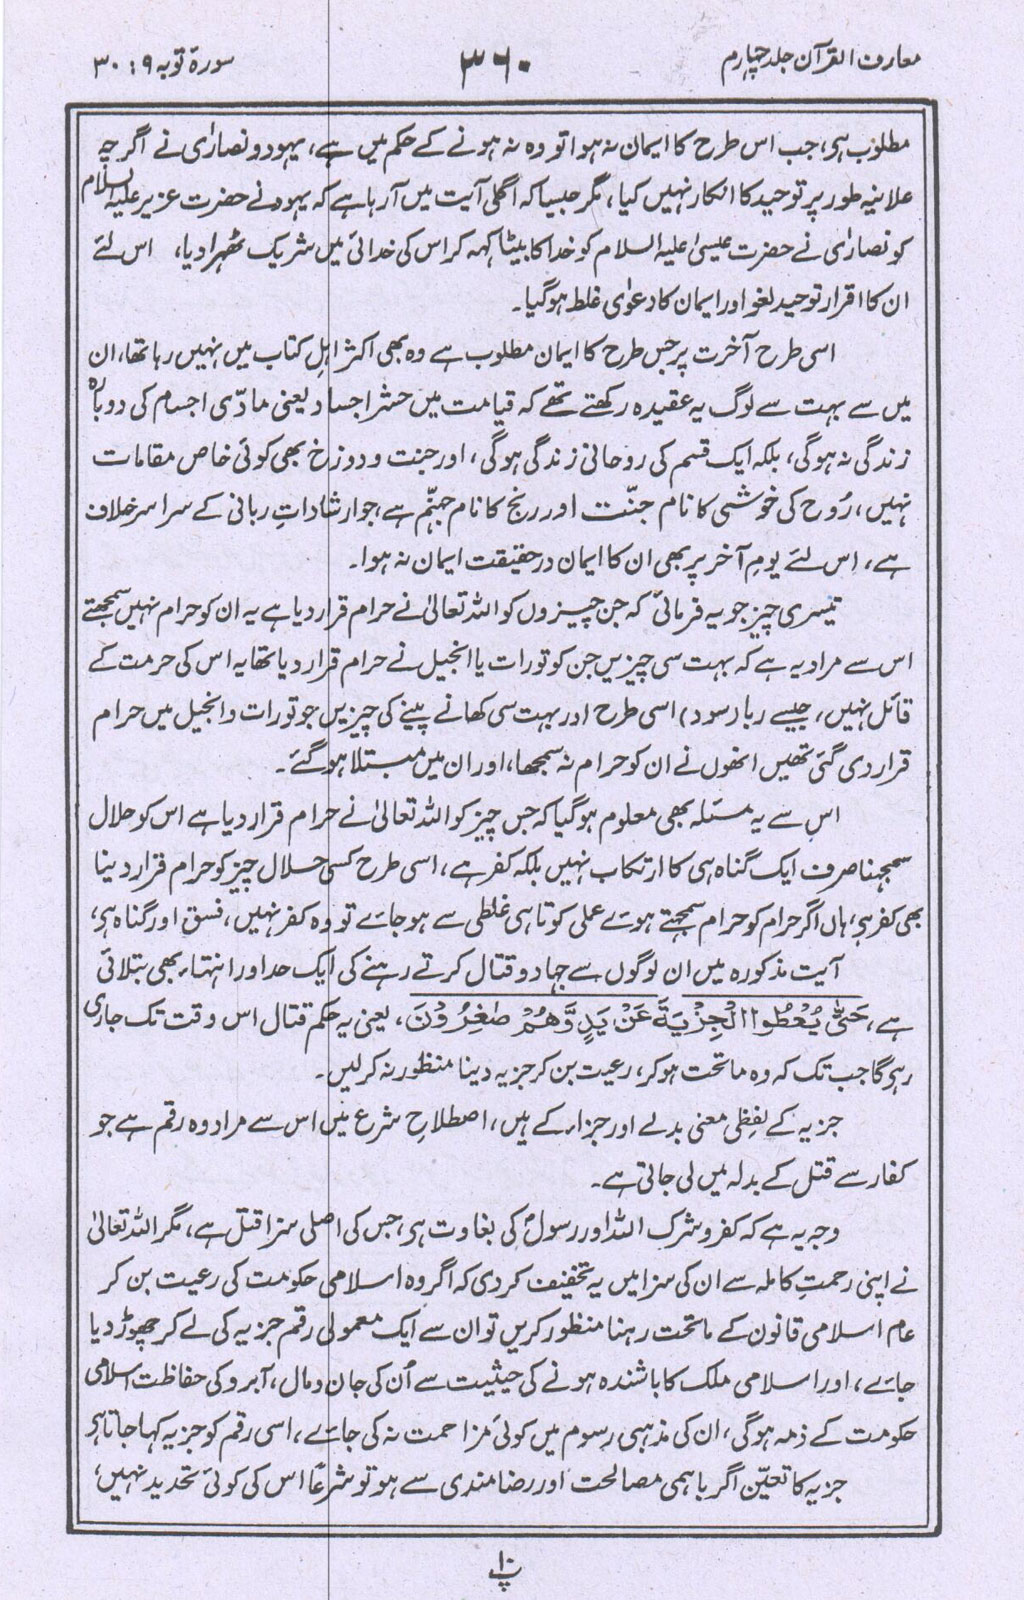 معارف القرآن جلد چہارم
۳۶۰
سورۃ توبہ ۹ : ۳۰
مطلوب ہی، جب اس طرح کا ایمان نہ ہوا تو وہ نہ ہونے کے حکم میں ہے، یہود و نصارٰی نے اگرچہ
علانیہ طور پر توحید کا انکار نہیں کیا، مگر جیسا کہ اگلی آیت میں آرہا ہے کہ یہود نے حضرت عزیر علیہ السلام
کو نصارٰی نے حضرت عیسیٰ علیہ السلام کو خدا کا بیٹا کہہ کر اس کی خدائی میں شریک ٹھہرا دیا، اس لئے
ان کا اقرار توحید لغو اور ایمان کا دعوٰی غلط ہوگیا۔
اسی طرح آخرت پر جس طرح کا ایمان مطلوب ہے وہ بھی اکثر اہلِ کتاب میں نہیں رہا تھا، ان
میں سے بہت سے لوگ یہ عقیدہ رکھتے تھے کہ قیامت میں حشر اجساد یعنی مادّی اجسام کی دوبارہ
زندگی نہ ہوگی، بلکہ ایک قسم کی روحانی زندگی ہوگی، اور جنت و دوزخ بھی کوئی خاص مقامات
نہیں، رُوح کی خوشی کا نام جنّت اور رنج کا نام جہنّم ہے، جو ارشاداتِ ربانی کے سراسر خلاف
ہے، اس لئے یومِ آخر پر بھی ان کا ایمان درحقیقت ایمان نہ ہوا۔
تیسری چیز جو یہ فرمائی کہ جن چیزوں کو اللہ تعالیٰ نے حرام قرار دیا ہے یہ ان کو حرام نہیں سمجھتے
اس سے مراد یہ ہے کہ بہت سی چیزیں جن کو تورات یا انجیل نے حرام قرار دیا تھا یہ اس کی حرمت کے
قائل نہیں، جیسے ربا (سود) اسی طرح اور بہت سی کھانے پینے کی چیزیں جو تورات و انجیل میں حرام
قرار دی گئی تھیں انھوں نے ان کو حرام نہ سمجھا، اور ان میں مبتلا ہوگئے۔
اس سے یہ مسئلہ بھی معلوم ہوگیا کہ جس چیز کو اللہ تعالیٰ نے حرام قرار دیا ہے اس کو حلال
سمجہنا صرف ایک گناہ ہی کا ارتکاب نہیں بلکہ کفر ہے، اسی طرح کسی حلال چیز کو حرام قرار دینا
بھی کفر ہی، ہاں اگر حرام کو حرام سمجہتے ہوئے عملی کوتاہی غلطی سے ہوجائے تو وہ کفر نہیں، فسق اور گناہ ہی،
آیت مذکورہ میں ان لوگوں سے جہاد و قتال کرتے رہنے کی ایک حد اور انتہاء بھی بتلائی
ہے، حَتّٰى يُعْطُوا الْجِزْيَةَ عَنْ يَدٍ وَّهُمْ صٰغِرُوْنَ، یعنی یہ حکم قتال اس وقت تک جاری
رہی گا جب تک کہ وہ ماتحت ہوکر، رعیت بن کر جزیہ دینا منظور نہ کرلیں۔
جزیہ کے لفظی معنی بدلے اور جزاء کے ہیں، اصطلاحِ شرع میں اس سے مراد وہ رقم ہے جو
کفار سے قتل کے بدلہ میں لی جاتی ہے۔
وجہ یہ ہے کہ کفر و شرک اللہ اور رسولؐ کی بغاوت ہی، جس کی اصلی سزا قتل ہے، مگر اللہ تعالیٰ
نے اپنی رحمتِ کاملہ سے ان کی سزا میں یہ تخفیف کردی کہ اگر وہ اسلامی حکومت کی رعیت بن کر
عام اسلامی قانون کے ماتحت رہنا منظور کریں تو ان سے ایک معمولی رقم جزیہ کی لے کر چھوڑ دیا
جائے، اور اسلامی ملک کا باشندہ ہونے کی حیثیت سے اُن کی جان و مال، آبرو کی حفاظت اسلامی
حکومت کے ذمہ ہوگی، ان کی مذہبی رسوم میں کوئی مزاحمت نہ کی جائے، اسی رقم کو جزیہ کہا جاتا ہی
جزیہ کا تعیّن اگر باہمی مصالحت اور رضامندی سے ہو تو شرعًا اس کی کوئی تحدید نہیں،